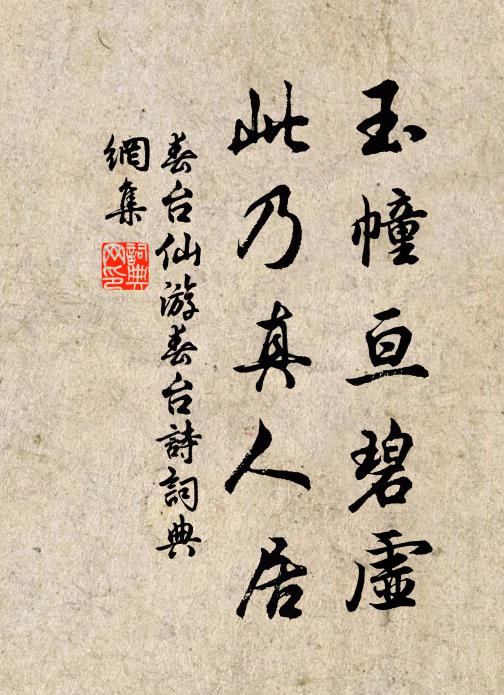 玉幢亘碧虛
此乃真人居
春台仙游春台詩詞典
網集
詞典
网印